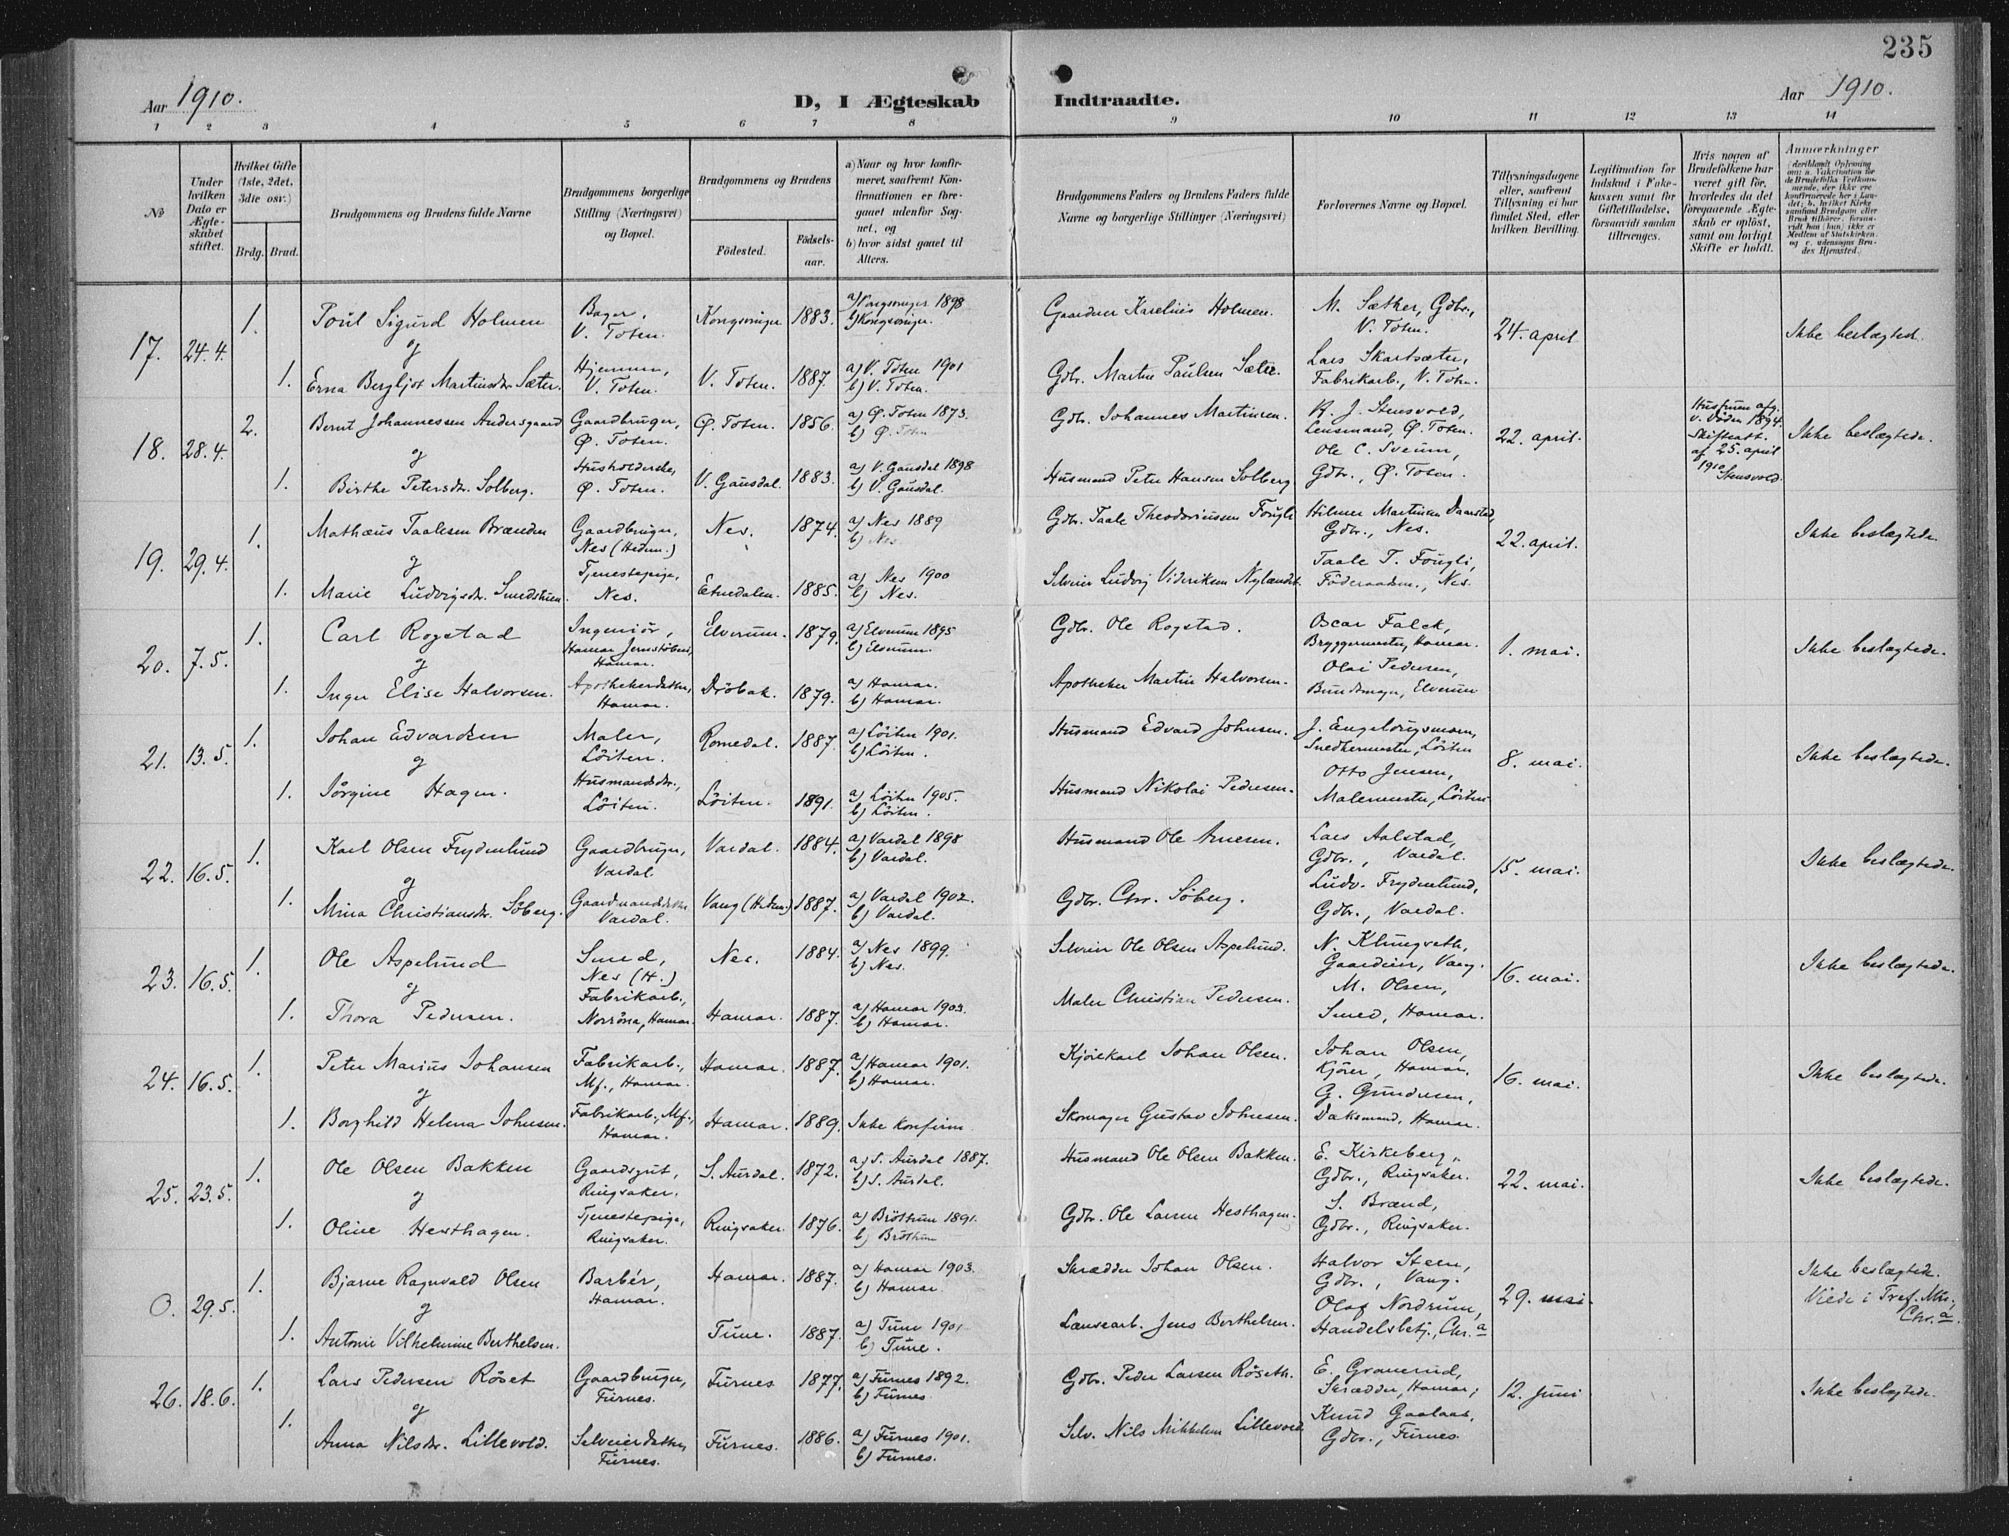 235
Aar 1910.
D, I Ægteskab Indtraadte.
Aar 1910.
1 2 3 4 5 6 7 8 9 10 11 12 13 14
No
Under hvilken Dato er Ægteskabet stiftet.
Hvilket Gifte (1ste, 2det, 3die osv.)
Brdg. Brud.
Brudgommens og Brudens fulde Navne
Brudgommens borgerlige Stilling (Næringsvei) og Bopæl.
Brudgommens og Brudens
Födested.
Födselsaar.
a) Naar og hvor konfirmeret, saafremt Konfirmationen er foregaaet udenfor Sognet, og
b) hvor sidst gaaet til Alters.
Brudgommens Faders og Brudens Faders fulde Navne og borgerlige Stillinger (Næringsvei)
Forlovernes Navne og Bopæl.
Tillysningsdagene eller, saafremt Tillysning ei har fundet Sted, efter hvilken Bevilling.
Legitimation for Indskud i Enkekassen samt for Giftetilladelse, forsaavidt saadan tiltrænges.
Hvis nogen af Brudefolkene har været gift før, hvorledes da det foregaaende Ægteskab er opløst, samt om lovligt Skifte er holdt.
Anmærkninger
17. 24.4. 1. Poul Sigurd Holmen Bager, V. Toten. Kongsvinger 1883. a) Kongsvinger 1898 b) Kongsvinger. Gaardner Karelius Holmen. M. Sæther, Gdbr., V. Toten. 24. april Ikke beslægtede.
og
1. Erna Bergljot Martinsdr. Sæter. Hjemme, V. Toten. V. Toten. 1887. a) V. Toten 1901 b) V. Toten. Gdbr. Martin Paulsen Sæter. Lars Skartsæter, Fabrikarb., V. Toten.
18. 28.4. 2. Bernt Johannessen Andersgaard Gaardbruger, Ø. Toten. Ø. Toten. 1856. a) Ø. Toten 1873. b) Ø. Toten Gdbr. Johannes Martinsen. K. J. Stensvold, Lensmand, Ø. Toten. 22. april. Hustruen afg. v. Døden 1894. Skifteatt. af 25. april 1910 Stensvold. Ikke beslægtede.
og
1. Birthe Petersdr. Solberg. Husholderske, Ø. Toten. V. Gausdal. 1883. a) V. Gausdal 1898 b) V. Gausdal. Husmand Peter Hansen Solberg Ole C. Sveum, Gdbr., Ø. Toten.
19. 29.4. 1. Mathæus Taalesen Brænden Gaardbruger, Nes (Hedm.) Nes. 1874. a) Nes 1889 b) Nes Gdbr. Taale Theodoriussen Fougli Hilmer Martinsen Gdbr., Nes. 22. april. Ikke beslægtede.
og
1. Marie Ludvigsdr. Smedstuen. Tjenestepige, Nes. Etnedalen. 1885. a) Nes 1900 b) Nes. Selveier Ludvig Nylændet. Taale T. Fougli, Føderaadsm., Nes.
20. 7.5. 1. Carl Rogstad Ingeniør, Hamar Jernstøberi, Hamar. Elverum. 1879. a) Elverum 1895 b) Elverum. Gdbr. Ole Rogstad. Oscar Falck, Bryggermester, Hamar. 1. mai. Ikke beslægtede.
og
1. Inger Elise Halvorsen. Apothekerdatter, Hamar. Drøbak. 1879. a) Hamar. b) Hamar. Apotheker Martin Halvorsen. Olai Pedersen, Elverum
21. 13.5. 1. Johan Edvardsen Maler, Löiten. Romedal. 1887. a) Löiten 1901. b) Löiten. Husmand Edvard Johnsen. Snedkermester, Löiten 8. mai. Ikke beslægtede.
og
1. Jørgine Hagen. Husmandsdr., Löiten. Löiten. 1891. a) Löiten 1905. b) Löiten. Husmand Nikolai Pedersen. Otto Jensen, Malermester, Löiten
22. 16.5. 1. Karl Olsen Frydenlund Gaardbruger, Vardal. Vardal. 1884. a) Vardal 1898 b) Vardal. Husmand Ole Arnesen. Lars Aalstad, Gdbr., Vardal. 15. mai. Ikke beslægtede.
og
1. Mina Christiansdr. Søberg. Gaardmandsdatter Vardal. Vang (Hedm.) 1887. a) Vardal 1902. b) Vardal. Gdbr. Chr. Søberg. Ludv. Frydenlund, Gdbr., Vardal.
23. 16.5. 1. Ole Aspelund Smed, Nes (H.) Nes. 1884. a) Nes 1899. b) Nes. Selveier Ole Olsen Aspelund. N. Klungseth, Gaardeier, Vang. 16. mai. Ikke beslægtede.
og
1. Thora Pedersen. Fabrikarb., Norröna, Hamar. Hamar. 1887. a) Hamar 1903. b) Hamar. Maler Christian Pedersen. M. Olsen, Smed, Hamar.
24. 16.5. 1. Peter Marius Johansen Fabrikarb., Mf., Hamar. Hamar. 1887. a) Hamar 1901. b) Hamar. Kjørekarl Johan Olsen. Johan Olsen, Kjører, Hamar. 16. mai. Ikke beslægtede.
og
1. Borghild Helena Johnsen. Fabrikarb., Mf., Hamar. Hamar. 1889. Ikke konfirm. Skomager Gustav Johnsen. G. Gundersen, Hamar.
25. 23.5. 1. Ole Olsen Bakken Gaardsgut, Ringsaker. S. Aurdal. 1872. a) S. Aurdal 1887. b) S. Aurdal. Husmand Ole Olsen Bakken. E. Kirkeberg, Gdbr., Ringsaker. 22. mai. Ikke beslægtede.
og
1. Oline Hesthagen. Tjenestepige, Ringsaker. Ringsaker. 1876. a) Brøttum 1891. b) Brøttum Gdbr. Ole Larsen Hesthagen. S. Brænd, Gdbr., Ringsaker.
0. 29.5. 1. Bjarne Ragnvald Olsen Barbér, Hamar. Hamar. 1887. a) Hamar 1903. b) Hamar. Skrædder Johan Olsen. Halvor Steen, Gdbr., Vang. 29. mai. Ikke beslægtede. Viede i Tref. Mk., Chr.a.
og
1. Antonie Vilhelmine Berthelsen. Tune. 1887. a) Tune 1901 b) Tune. Lænsearb. Jens Berthelsen. Olaf Nordrum, Handelsbetj., Chr.a
26. 18.6. 1. Lars Pedersen Röset Gaardbruger, Furnes. Furnes 1877. a) Furnes 1892. b) Furnes Gdbr. Peder Larsen Röseth. E. Granerud, Skrædder, Hamar; 12. juni Ikke beslægtede.
og
1. Anna Nilsdr. Lillevold. Selveierdatter, Furnes. Furnes. 1886. a) Furnes 1901. b) Furnes. Selv. Nils Mikkelsen Lillevold Knud Gaalaas, Gdbr., Furnes.